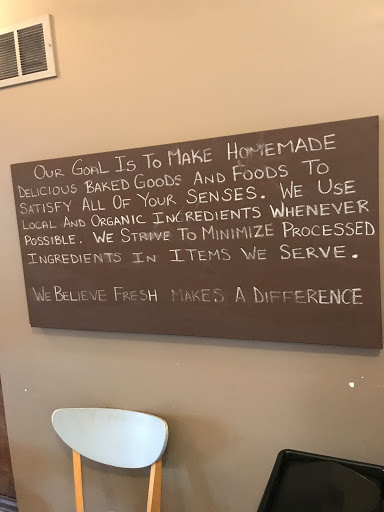 OUR GOAL IS TO MAKE HOMEMADE
DELICIOUS BAKED GOODS AND FOODS TO
SATISFY ALL OF YOUR SENSES. WE USE
LOCAL AND ORGANIC INGREDIENTS WHENEVER
POSSIBLE. WE STRIVE TO MINIMIZE PROCESSED
INGREDIENTS IN ITEMS WE SERVE.
WE BELIEVE FRESH MAKES A DIFFERENCE